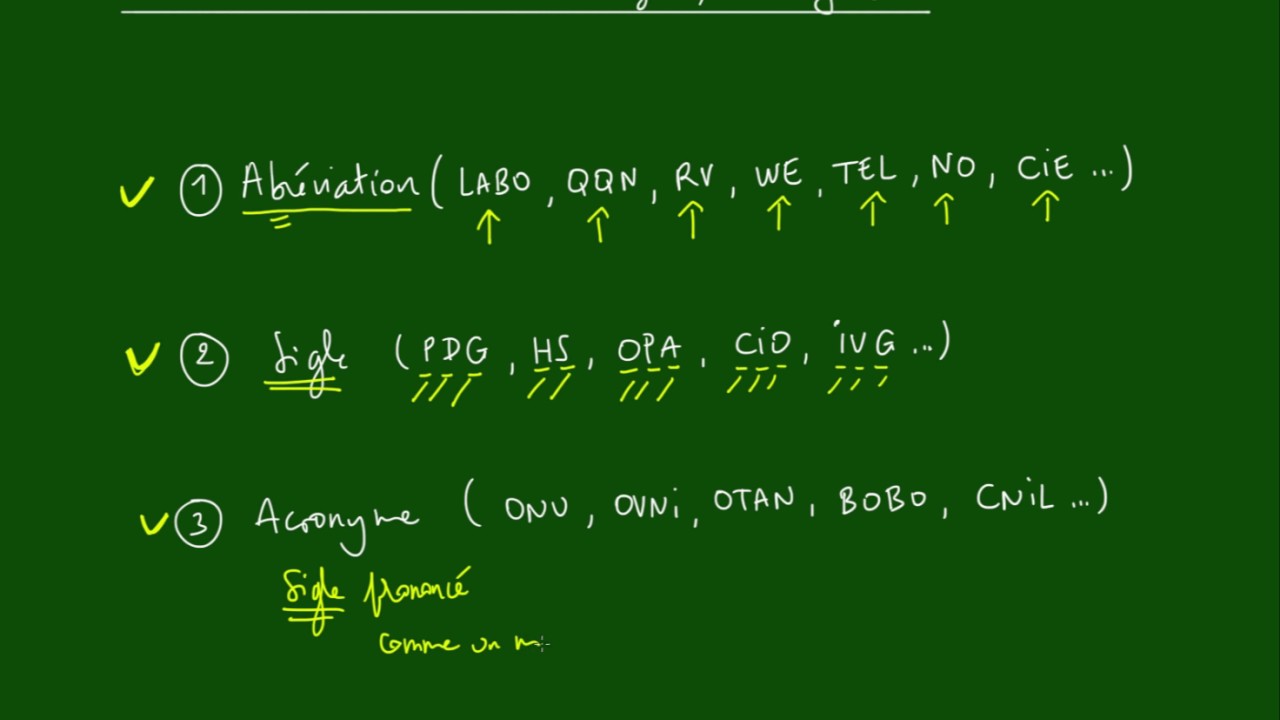 ① Abréviation ( LABO , QQN , RV , WE , TEL , NO , CiE ... )
② Sigle ( PDG , HS , OPA , CiO , iVG ... )
③ Acronyme ( ONU , OVNi , OTAN , BOBO , CNiL ... )
Sigle prononcé
comme un m